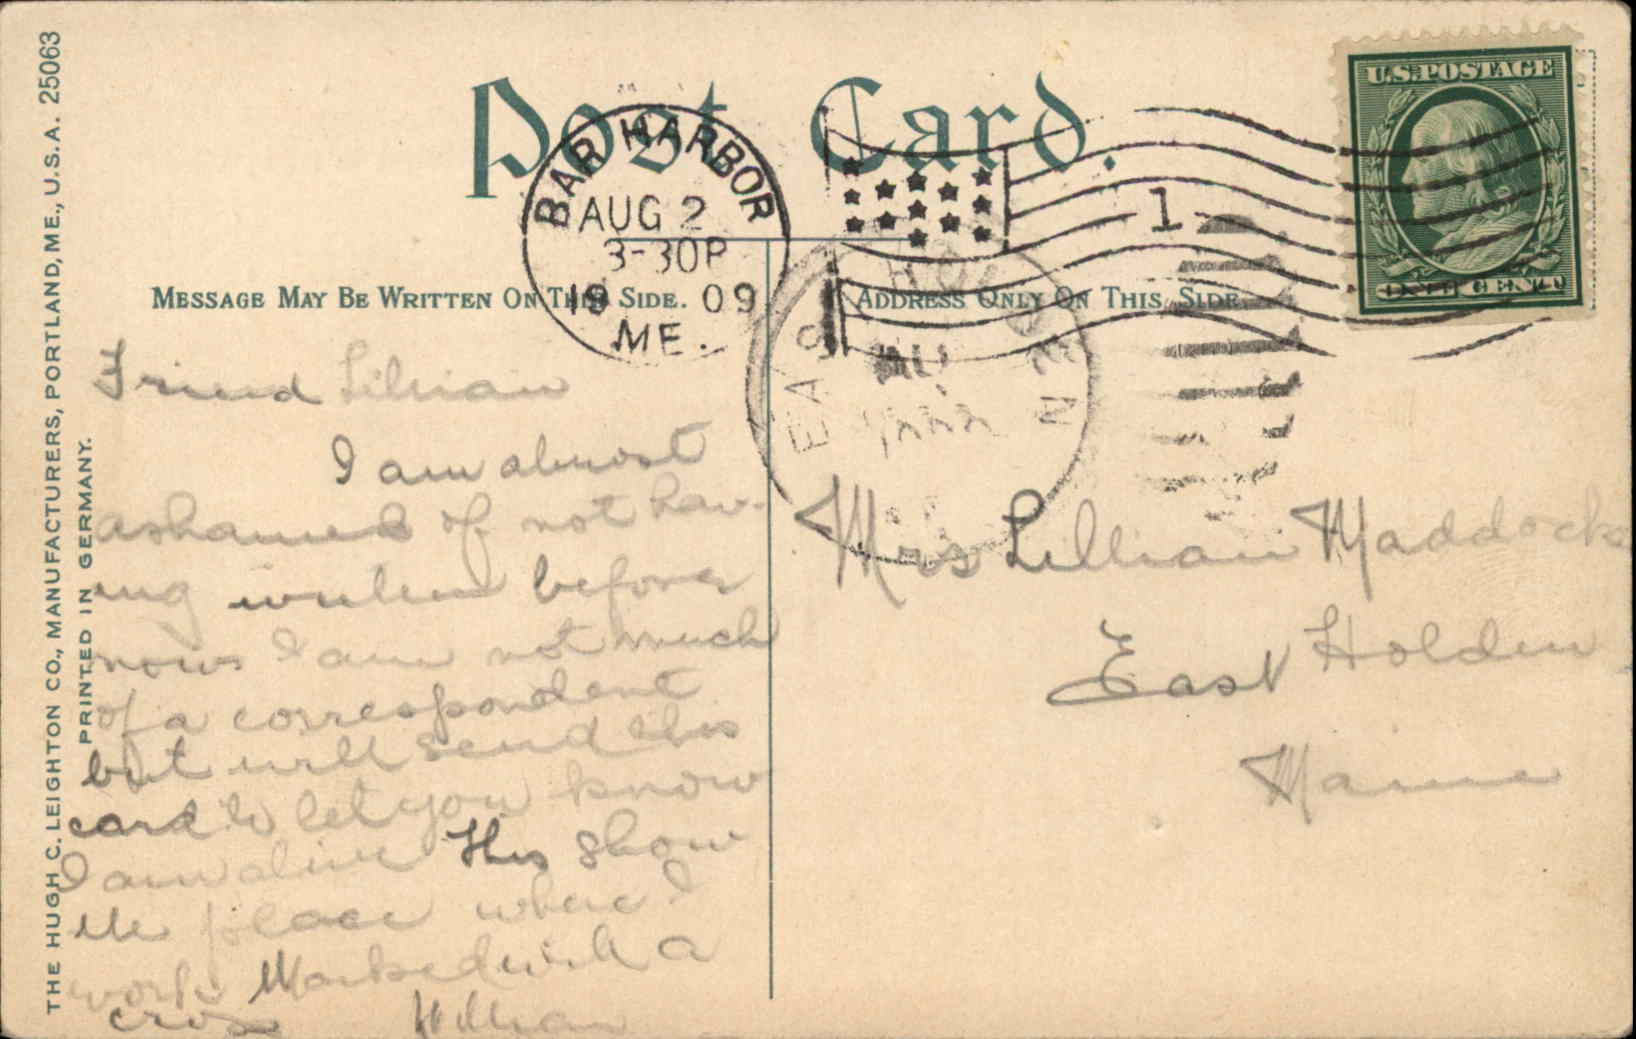 THE HUGH C. LEIGHTON CO., MANUFACTURERS, PORTLAND, ME., U.S.A. 25063
PRINTED IN GERMANY.
Post Card.
U.S. POSTAGE
BAR HARBOR
AUG 2
3-30P
19 09
ME.
1
MESSAGE MAY BE WRITTEN ON THIS SIDE.
ADDRESS ONLY ON THIS SIDE
EAS HOL
Friend Lillian
I am almost
ashamed of not hav-
ing written before
now I am not much
of a correspondent
but will send this
card to let you know
I am alive This show
the place where I
work Marked with a
cros William
Mrs Lillian Maddocks
East Holden
Maine